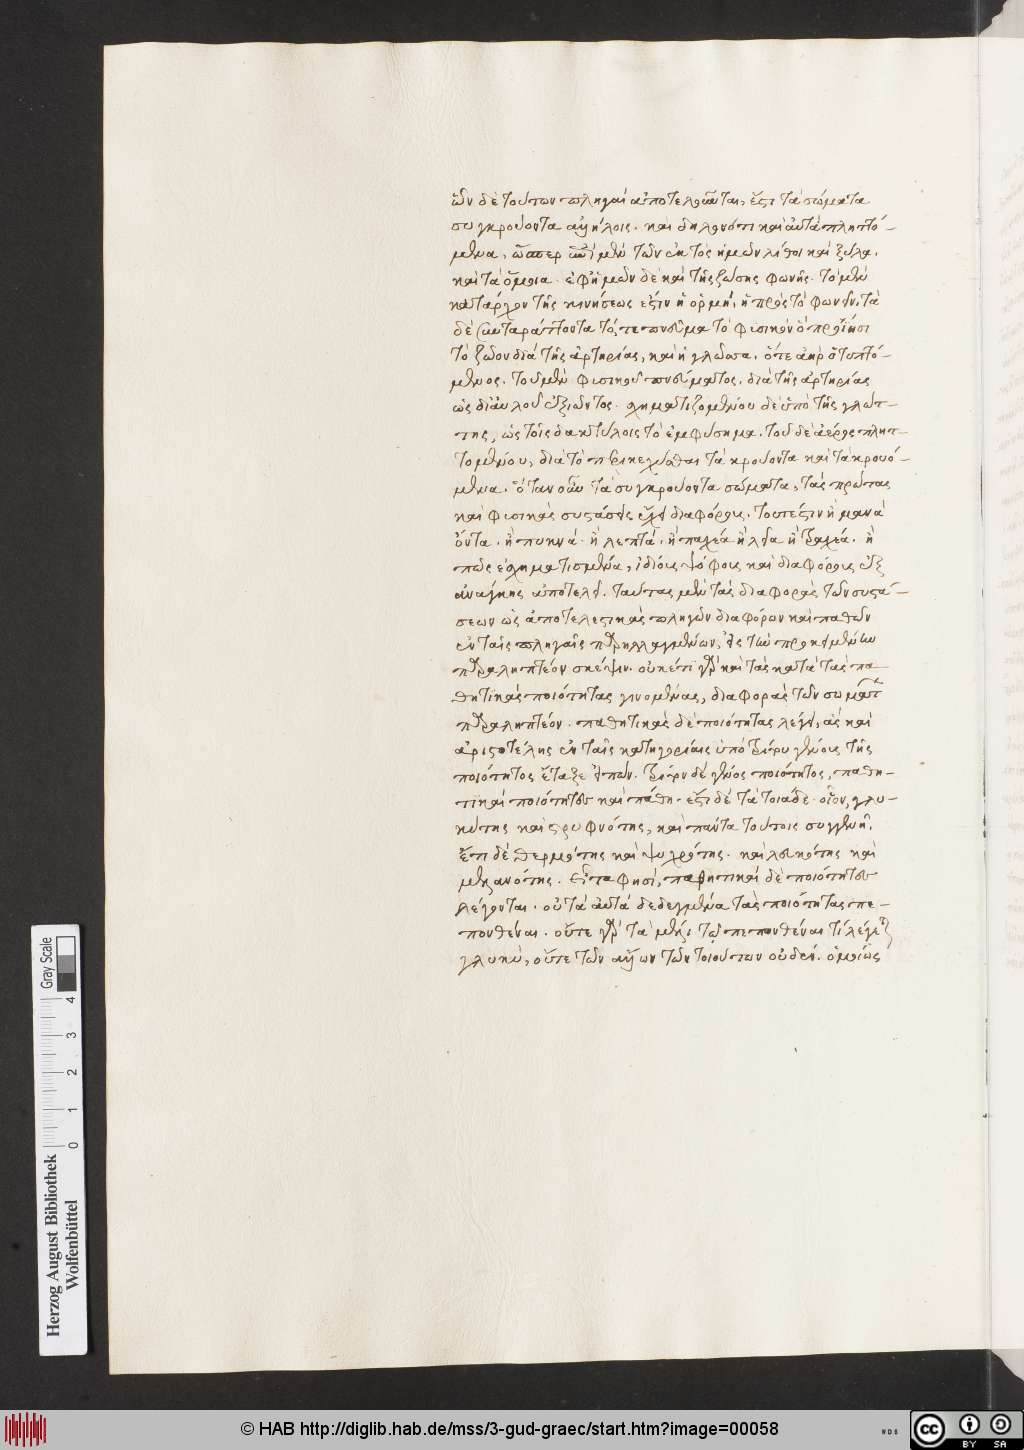 ὧν δὲ τούτων πληγαὶ ἀποτελοῦνται, ἔστι τὰ σώματα
συγκρούοντα ἀλλήλοις. καὶ δηλονότι καὶ αὐτὰ πληττό-
μενα, ὥσπερ μὲν τῶν ἐκτὸς ἡμῶν λίθοι καὶ ξύλα,
καὶ τὰ ὅμοια. ἐφ' ἡμῶν δὲ καὶ τῆς ζώσης φωνῆς. τὸ μὲν
κατάρχον τῆς κινήσεως ἐστὶν ἡ ὁρμή, ἡ πρὸς τὸ φωνεῖν. τὰ
δὲ τό, τε πνεῦμα τὸ φυσικὸν ὃ προΐησι
τὸ ζῶον διὰ τῆς ἀρτηρίας, καὶ ἡ γλῶσσα. ὅτε ἀὴρ ὁ τυπτό-
μενος. τοῦ μὲν φυσικοῦ πνεύματος, διὰ τῆς ἀρτηρίας
ὡς δι' αὐλοῦ ἐξιόντος. σχηματιζομένου δὲ ὑπὸ τῆς γλώτ-
της, ὡς τοῖς δακτύλοις τὸ ἐμφύσημα. τοῦ δὲ ἀέρος πλητ-
τομένου, διὰ τὸ περικεχύσθαι τὰ κρούοντα καὶ τὰ κρουό-
μενα. ὅταν οὖν τὰ συγκρούοντα σώματα, τὰς πρώτας
καὶ φυσικὰς συστάσεις ἔχῃ διαφόρους. τουτέστιν ἢ μανὰ
ὄντα. ἢ πυκνά. ἢ λεπτά. ἢ παχέα ἢ λεῖα ἢ τραχέα. ἢ
πῶς ἐσχηματισμένα, ἰδίοις ψόφοις καὶ διαφόροις ἐξ
ἀνάγκης ἀποτελεῖ. ταύτας μὲν τὰς διαφορὰς τῶν συστά-
σεων ὡς ἀποτελεστικὰς πληγῶν διαφόρων καὶ παθῶν
ἐν ταῖς πληγαῖς παρηλλαγμένων, εἰς τὴν προκειμένην
παραληπτέον σκέψιν. οὐκέτι γὰρ καὶ τὰς κατὰ τὰς πα-
θητικὰς ποιότητας γινομένας, διαφορὰς τῶν σωμάτων
παραληπτέον. παθητικὰς δὲ ποιότητας λέγει, ἃς καὶ
ἀριστοτέλης ἐν ταῖς κατηγορίαις ὑπὸ τρίτου γένους τῆς
ποιότητος ἔταξε εἰπών. τρίτον δὲ γένος ποιότητος, παθη-
τικαὶ ποιότητες καὶ πάθη. ἔστι δὲ τὰ τοιάδε. οἷον, γλυ-
κύτης καὶ στρυφνότης, καὶ πάντα τούτοις συγγενῆ.
ἔτι δὲ θερμότης καὶ ψυχρότης. καὶ λευκότης καὶ
μελανότης. εἶτα φησί, παθητικαὶ δὲ ποιότητες
λέγονται. οὐ τὰ αὐτὰ δεδεγμένα τὰς ποιότητας πε-
πονθέναι. οὔτε γὰρ τὰ μέλι τῷ πεπονθέναι τὶ λέγεται
γλυκύ, οὔτε τῶν ἄλλων τῶν τοιούτων οὐδέν. ὁμοίως
Herzog August Bibliothek
Wolfenbüttel
Gray Scale
0 1 2 3 4
© HAB http://diglib.hab.de/mss/3-gud-graec/start.htm?image=00058
cc BY SA